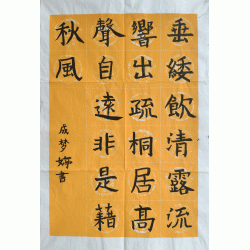 垂緌飲清露流
響出疏桐居高
聲自遠非是藉
秋風
成梦婷書